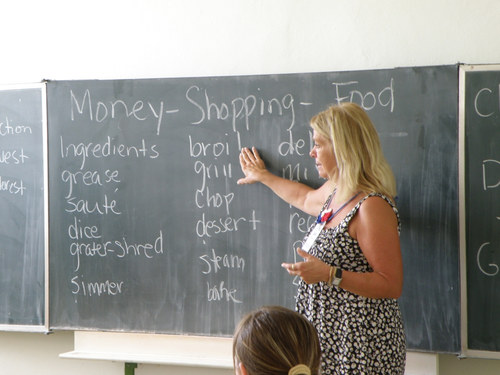 Money-Shopping-Food
Ingredients
grease
sauté
dice
grater-shred
simmer
broil
grill
chop
dessert
steam
bake